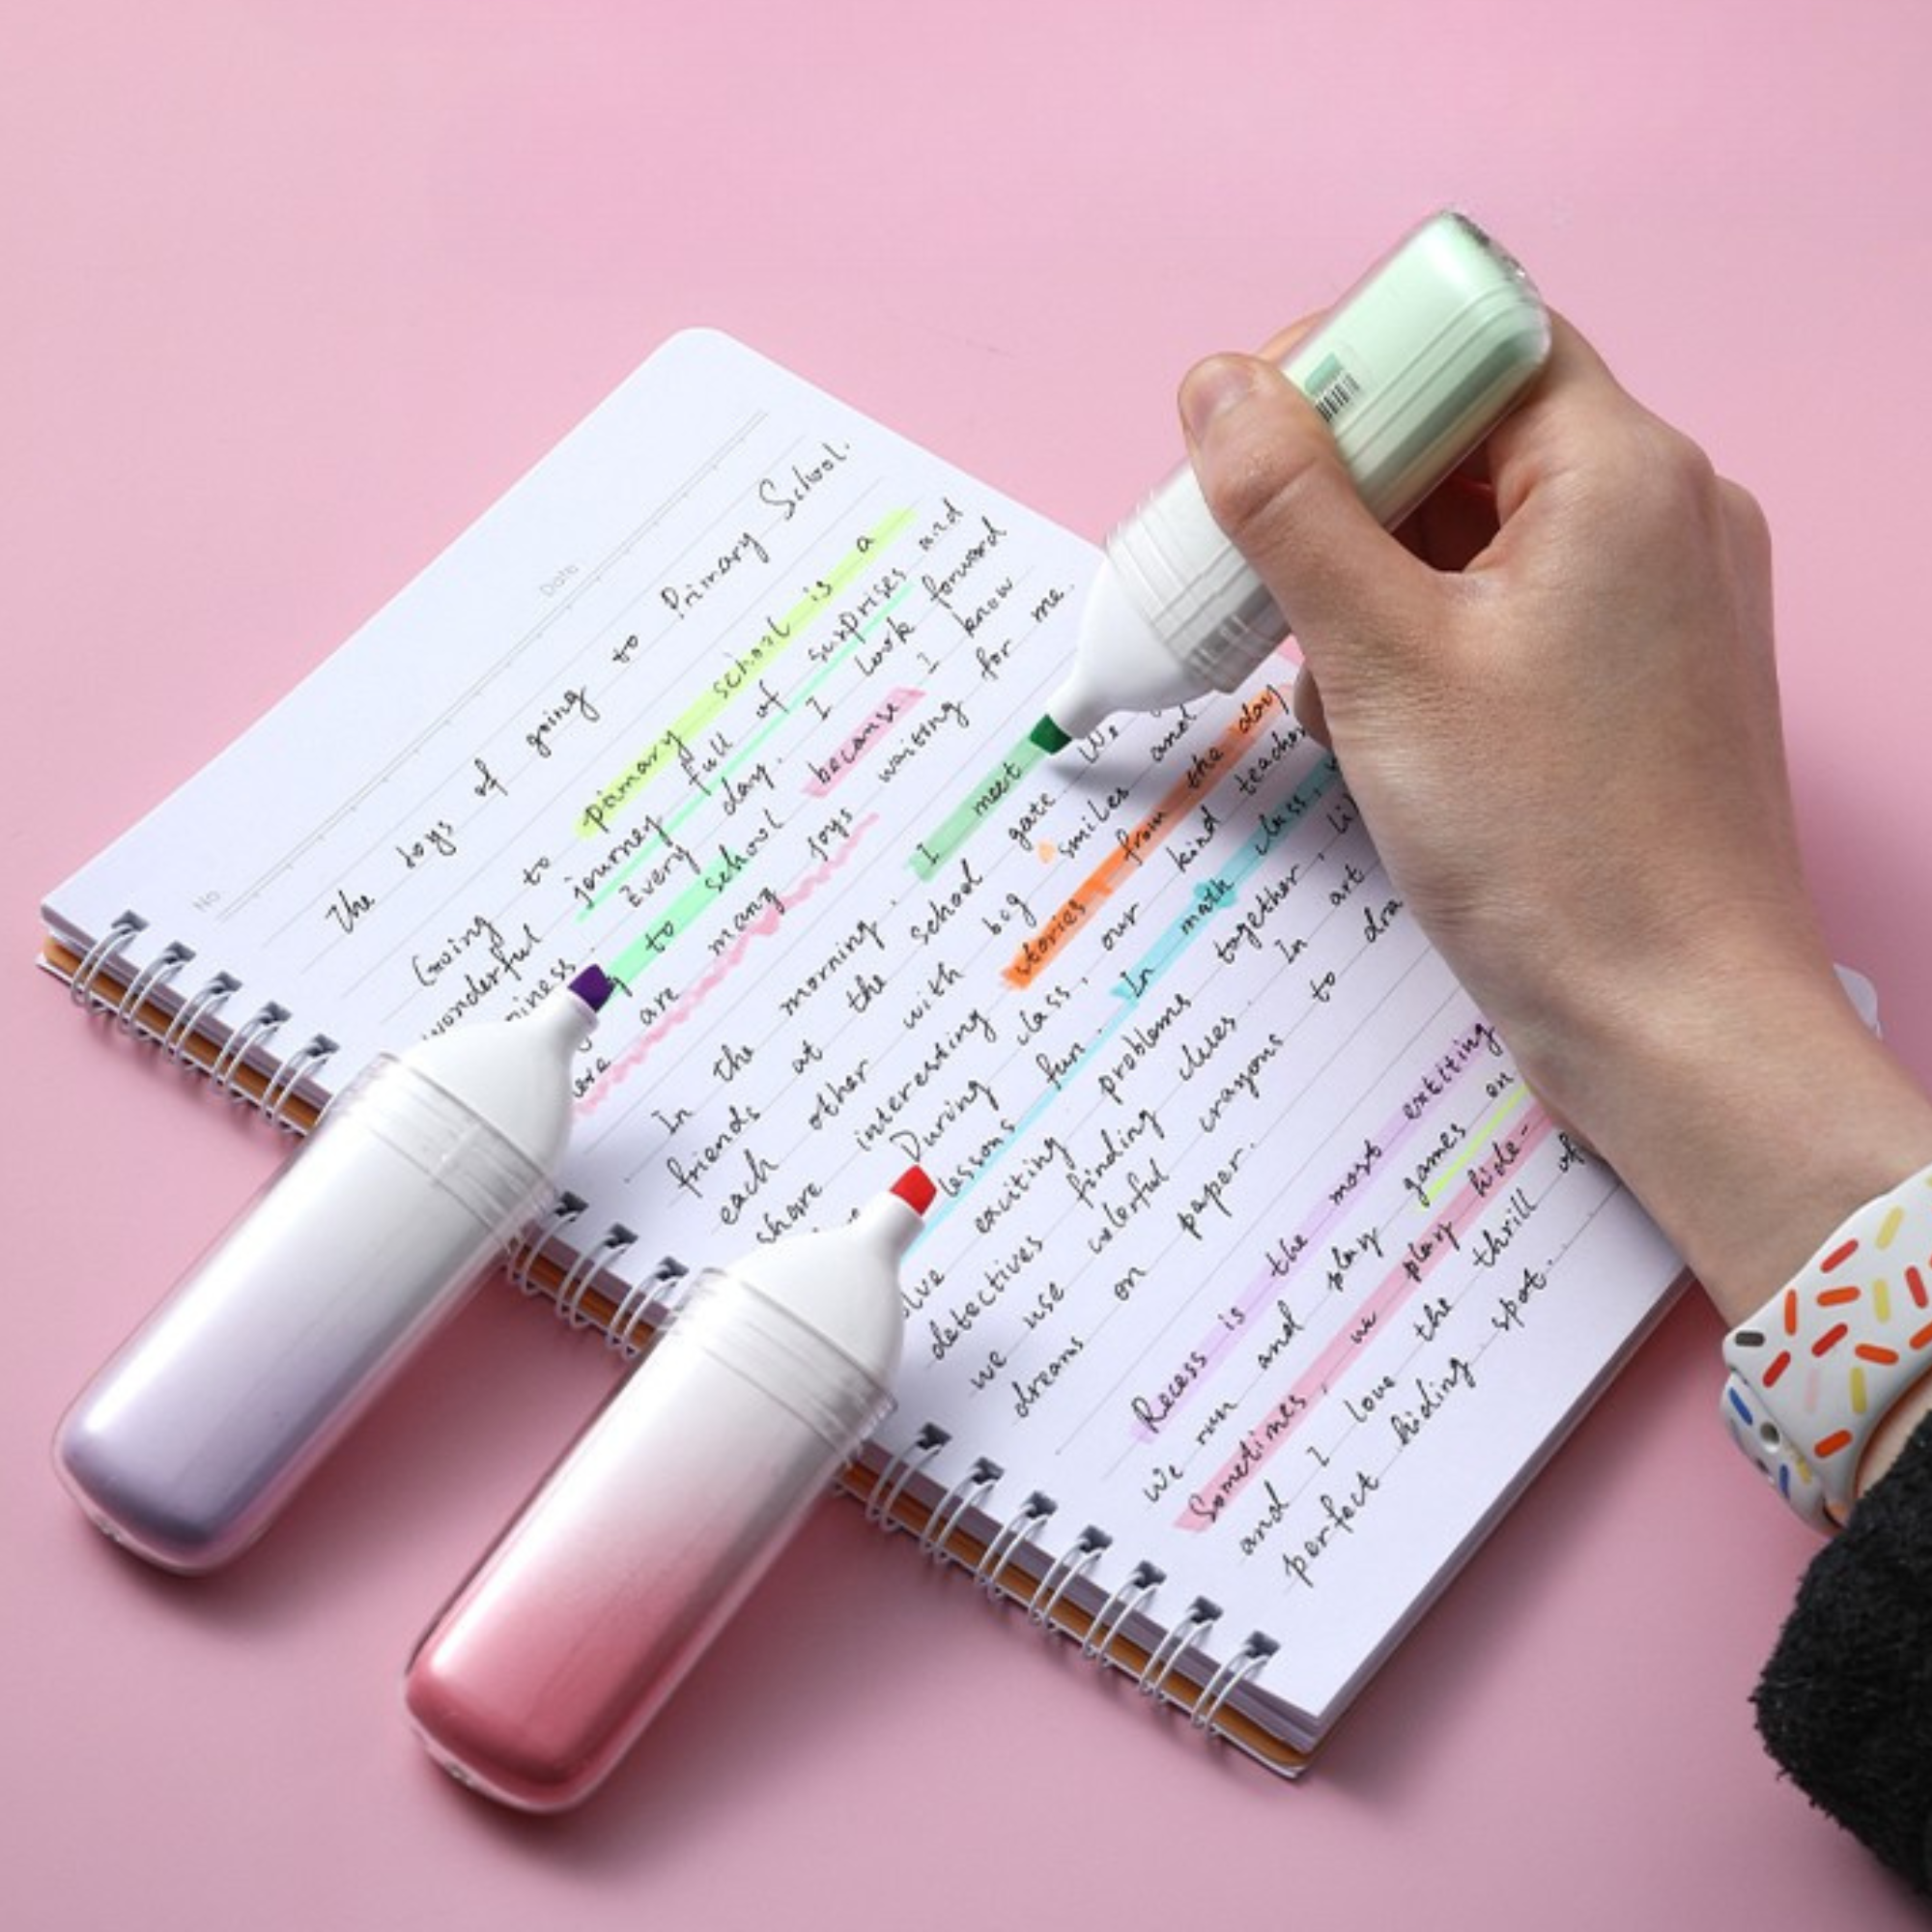 No
Date
The joys of going to Primary School.
Going to primary school is a
wonderful journey full of surprises and
iness. Every day. I look forward
to school because I know
ere are many joys waiting for me.
In the morning, I meet
friends at the school gate. We
each other with big smiles and
share interesting stories from the day
During class, our kind teacher
lessons fun. In math class,
olve exciting problems together, li
detectives finding clues. In art
we use colorful crayons to dra
dreams on paper.
Recess is the most extiting
We run and play games on
Sometimes, we play hide-
and I love the thrill of
perfect hiding spot.